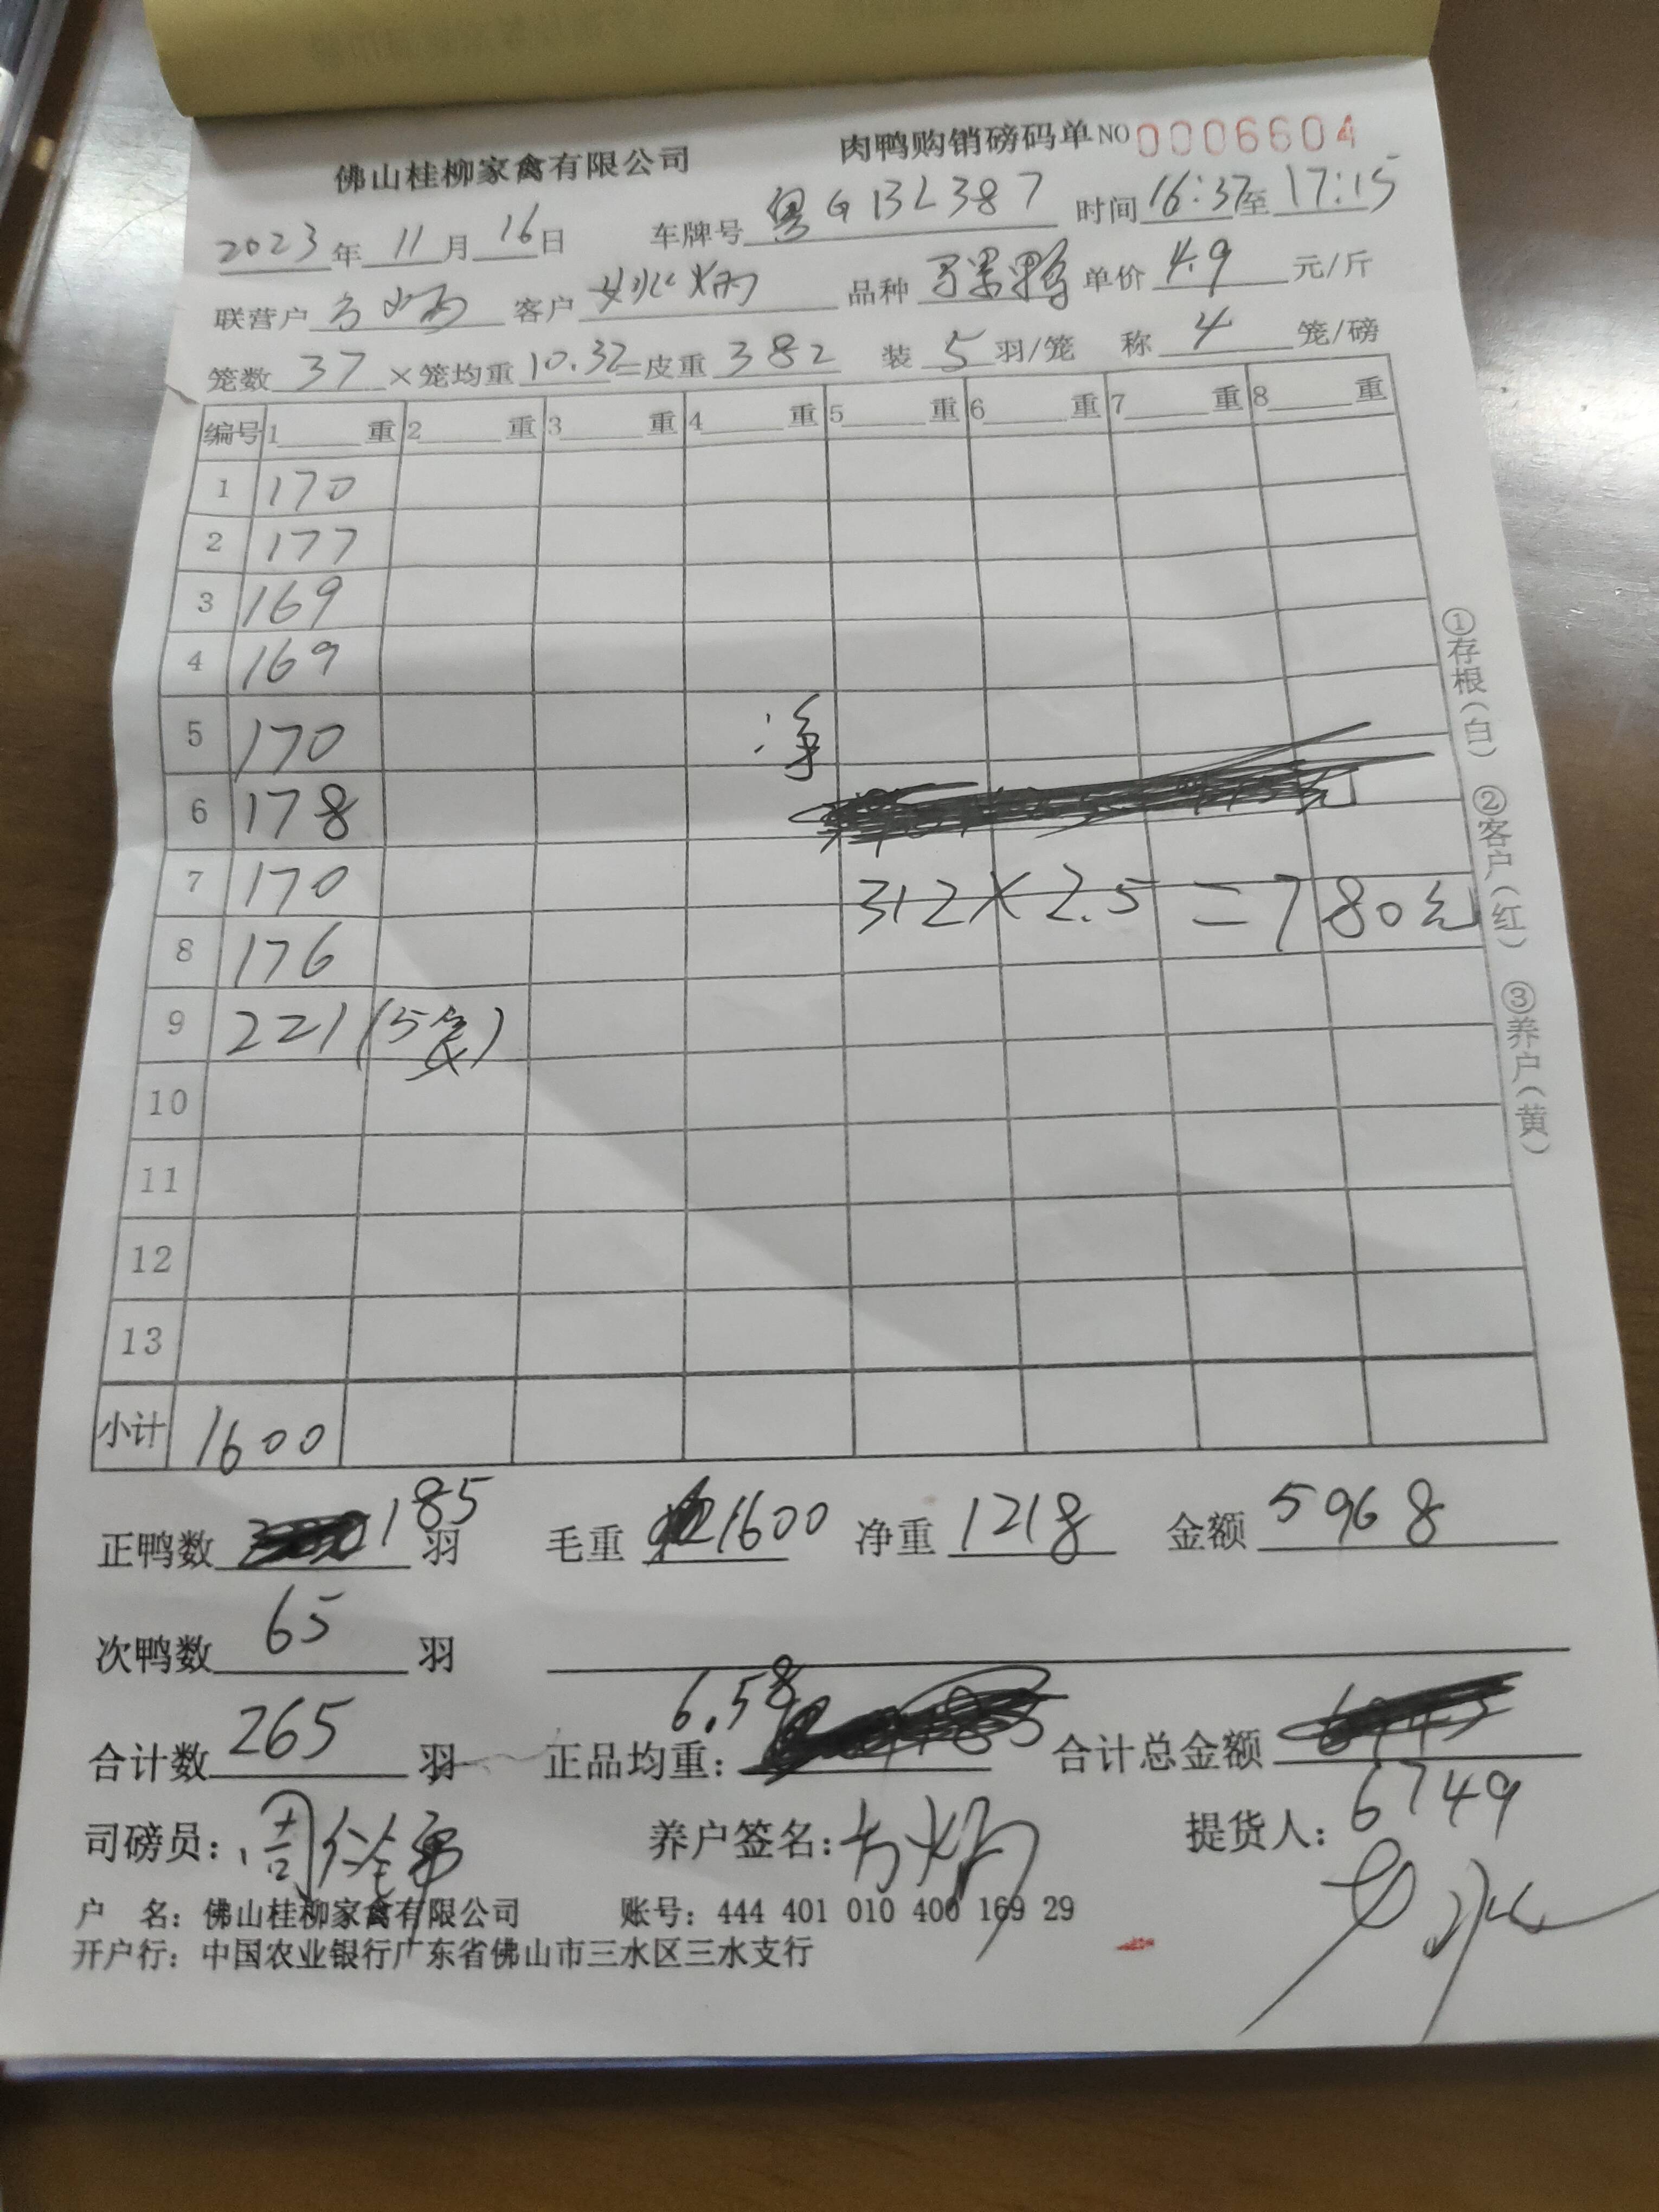 佛山桂柳家禽有限公司 肉鸭购销磅码单 NO 0006604
2023年 11月 16日 车牌号 粤GBL387 时间 16:37至17:15
联营户 方炳 客户 品种 单价 4.9 元/斤
笼数 37 ×笼均重 10.32 =皮重 382 装 5 羽/笼 称 4 笼/磅
编号 1 重 2 重 3 重 4 重 5 重 6 重 7 重 8 重
1 170
2 177
3 169
4 169
5 170 净
6 178
7 170 312×2.5=780元
8 176
9 221(5笼)
10
11
12
13
小计 1600
正鸭数 185 羽 毛重 1600 净重 1218 金额 5968
次鸭数 65 羽
合计数 265 羽 正品均重: 6.58 合计总金额 6749
司磅员: 养户签名: 方炳 提货人:
户 名: 佛山桂柳家禽有限公司 账号: 444 401 010 400 169 29
开户行: 中国农业银行广东省佛山市三水区三水支行
①存根(白) ②客户(红) ③养户(黄)